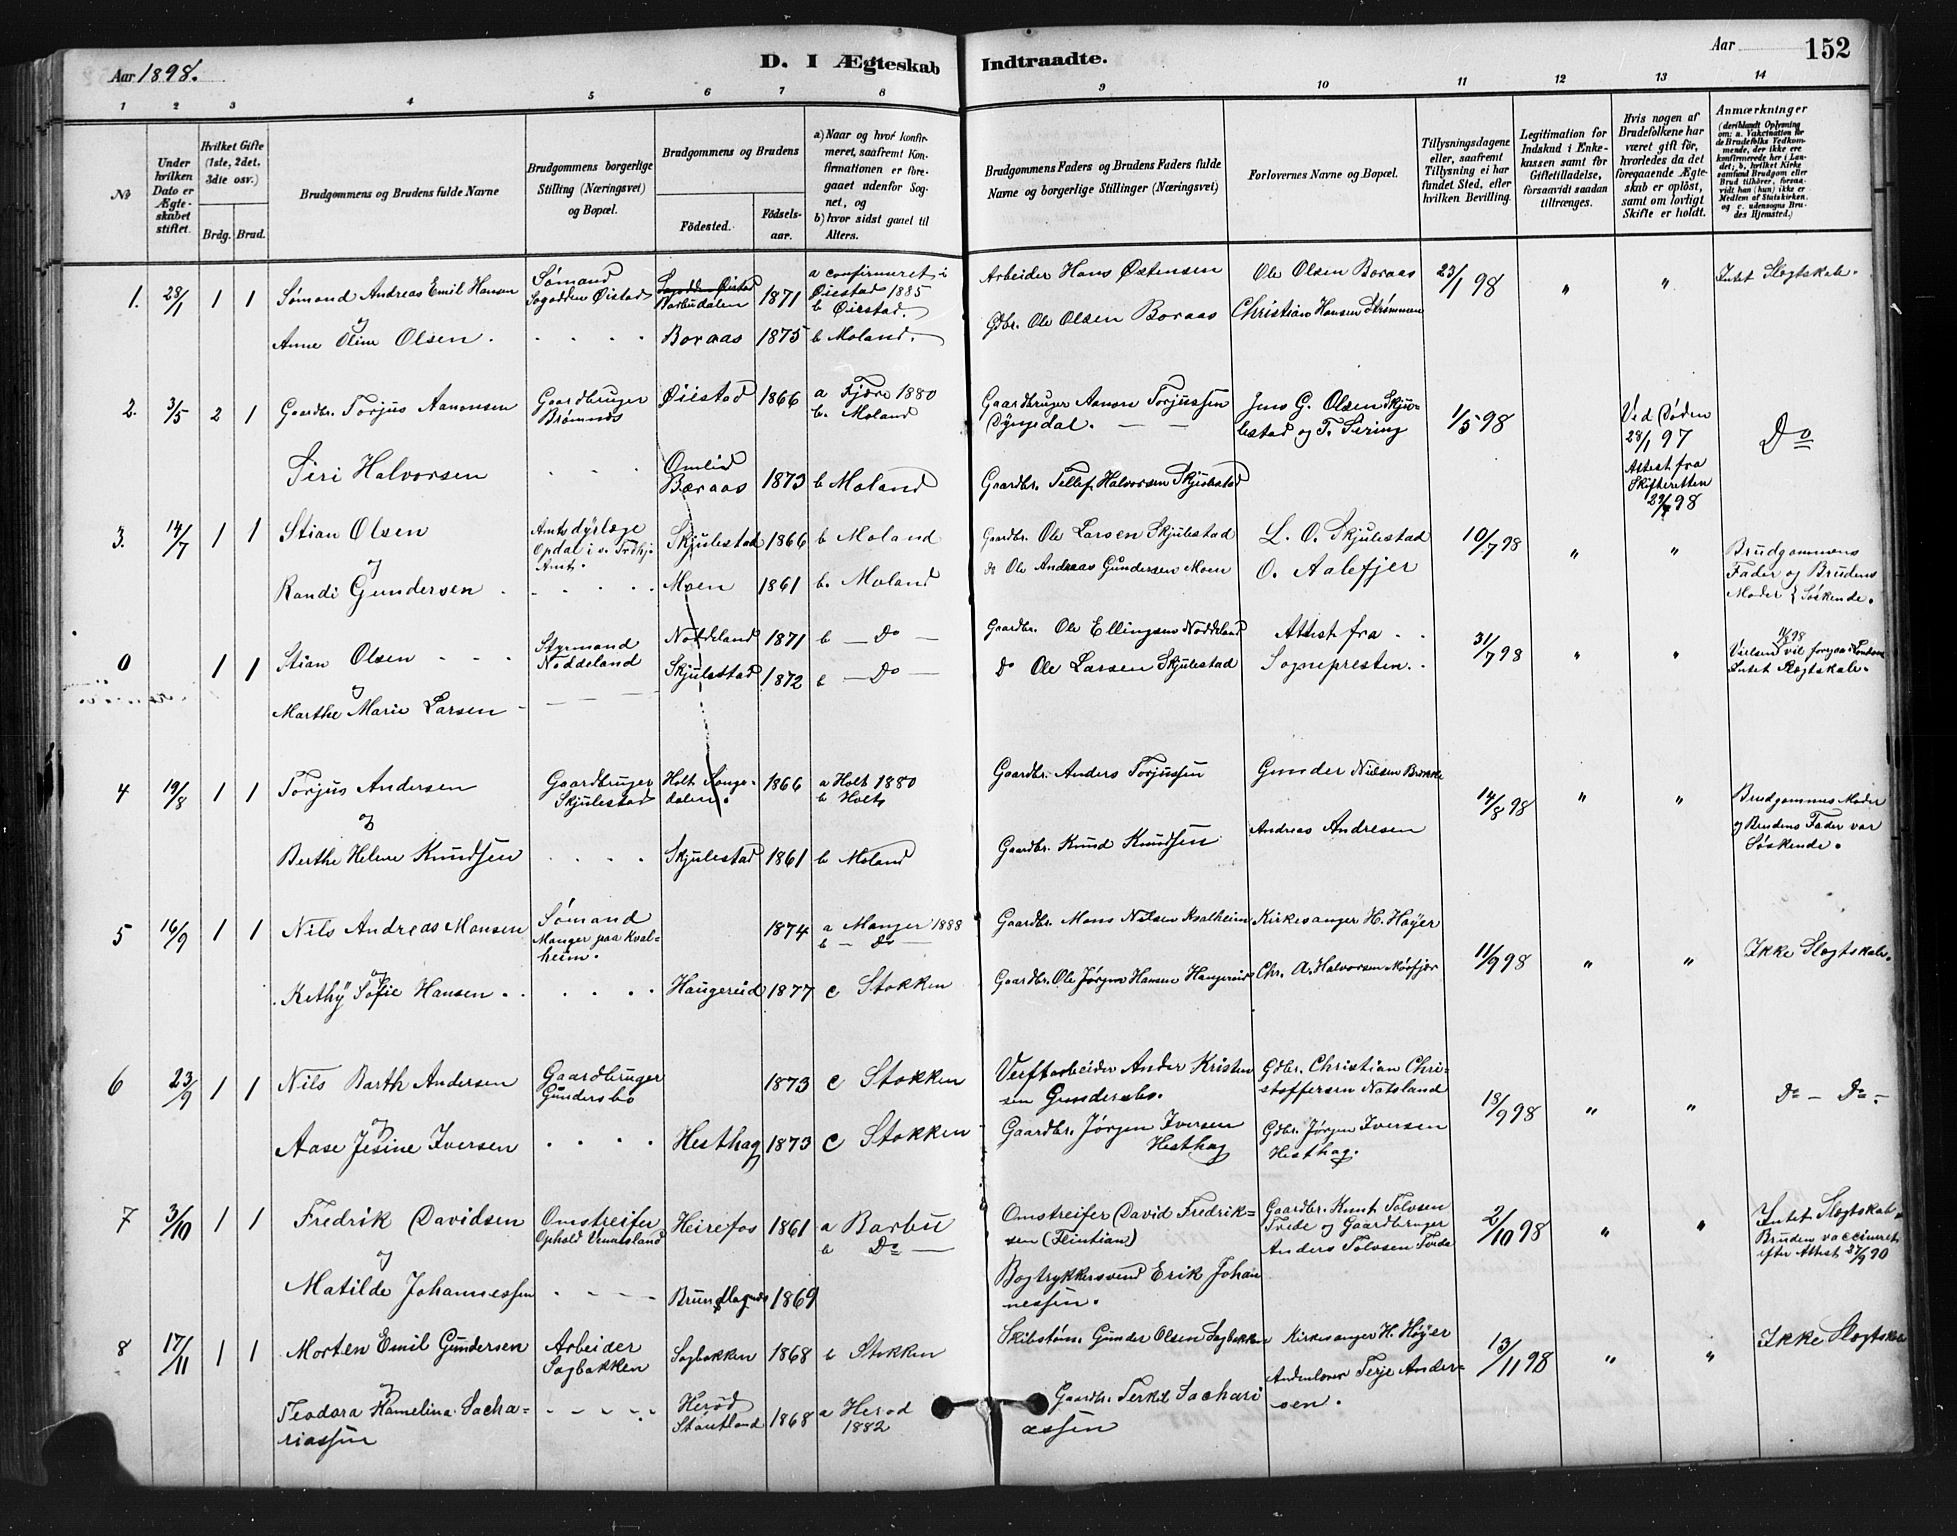 Aar 1898.
D. I Ægteskab Indtraadte.
Aar
152
1 2 3 4 5 6 7 8 9 10 11 12 13 14
No
Under hvilken Dato er Ægteskabet stiftet.
Hvilket Gifte (1ste, 2det, 3die osv.)
Brdg. Brud.
Brudgommens og Brudens fulde Navne
Brudgommens borgerlige Stilling (Næringsvei) og Bopæl.
Brudgommens og Brudens
Fødested.
Fødselsaar.
a) Naar og hvor konfirmeret, saafremt Konfirmationen er foregaaet udenfor Sognet, og
b) hvor sidst gaaet til Alters.
Brudgommens Faders og Brudens Faders fulde Navne og borgerlige Stillinger (Næringsvei)
Forlovernes Navne og Bopæl.
Tillysningsdagene eller, saafremt Tillysning ei har fundet Sted, efter hvilken Bevilling.
Legitimation for Indskud i Enkekassen samt for Giftetilladelse, forsaavidt saadan tiltrænges.
Hvis nogen af Brudefolkene har været gift før, hvorledes da det foregaaende Ægteskab er opløst, samt om lovligt Skifte er holdt.
Anmærkninger (deriblandt Oplysning om: a. Vakcination for de Brudefolks Vedkommende, der ikke ere konfirmerede her i Landet; b. hvilket Kirkesamfund Brudgom eller Brud tilhører, forsaavidt han (hun) ikke er Medlem af Statskirken, og c. udensogns Brudes Hjemsted.)
1. 28/1 1 1 Sømand Andreas Emil Hansen
Sømand Sogodden Øistad
Sogodden Øistad Barbudalen 1871
a confirmeret i Øiestad 1885
b Øiestad.
Arbeider Hans Østensen
Ole Olsen Boraas
Christian Hansen Strømmen
23/1 98 " " Intet Slægtskab.
og
Anne Oline Olsen. Boraas 1875 b Moland.
Gdbr. Ole Olsen Boraas
2. 3/5 2 1 Gaardbr. Torjus Aanonsen
Gaardbruger Brømnes
Øiestad 1866 a Fjære 1880
b. Moland
Gaardbruger Aanon Torjussen Dyngedal.
Jens G. Olsen Skjulestad og T. Sering
1/5 98
Ved Døden 28/1 97
Attest fra Skifteretten 29/4 98
Do
Siri Halvorsen
Omlid Bæraas 1873 b Moland
Gaardbr. Tellef Halvorsen Skjulestad
3. 14/7 1 1 Stian Olsen
Amtsdyrlæge Opdal i s. Trdhj. Amt.
Skjulestad 1866 b Moland
Gaardbr. Ole Larsen Skjulestad
L. O. Skjulestad
10/7 98 " "
Brudgommens Fader og Brudens Moder Søskende.
og
Randi Gundersen Moen 1861 b. Moland
do Ole Andreas Gundersen Moen
O. Aalefjer
0 1 1 Stian Olsen
Styrmand Noddeland
Noddeland 1871 b — Do —
Gaardbr. Ole Ellingsen Noddeland
Attest fra Sognepresten.
31/7 98 " "
Vielsen vil foregaa i London
Intet Slægtskab.
og
Marthe Marie Larsen
Skjulestad 1872 b — Do —
Do Ole Larsen Skjulestad
4 19/8 1 1 Torjus Andersen
Gaardbruger Skjulestad
Holt Songedalen. 1866 a Holt 1880
b Holt
Gaardbr. Anders Torjussen
Gunder Nielsen Brekke
14/8 98 " "
Brudgommens Moder og Brudens Fader var Søskende.
og
Berthe Helene Knudsen Skjulestad 1861 b Moland
Gaardbr. Knud Knudsen
Andreas Andresen
5 16/9 1 1 Nils Andreas Monsen
Sømand Manger paa Kvalheim.
1874 a Manger 1888
b — Do —
Gaardbr. Mons Nilsen Kvalheim
Kirkesanger H. Høyer
11/9 98 " " Ikke Slægtskab.
og
Kethy Sofie Hansen. Haugerud 1877 c Stokken
Gaardbr. Ole Jørgen Hansen Haugerud
Chr. A. Halvorsen Mørfjær
6 23/9 1 1 Nils Barth Andersen
Gaardbruger Gundersbo
1873 c Stokken
Verftarbeider Ander Kristensen Gundersbo.
Gdbr. Christian Christoffersen Natsland
18/9 98 " " Do — Do —
og
Aase Jesine Iversen Hesthag 1873 c Stokken
Gaardbr. Jørgen Iversen Hesthag
Gdbr. Jørgen Iversen Hesthag.
7 3/10 1 1 Fredrik Davidsen
Omstreifer Ophold Vennesland
Heirefos 1861 a Barbu
b Do —
Omstreifer David Fredriksen (Flintian)
Gaardbr. Knut Tolvsen Tvede og Gaardbruger Anders Tolvsen Tvede
2/10 98 " "
Intet Slægtskab
Bruden vaccineret efter Attest 27/9 90
og
Matilde Johannessen 1869
Bogtrykkersvend Erik Johannessen.
8 17/11 1 1 Morten Emil Gundersen
Arbeider Sagbakken
Sagbakken 1868 b Stokken
Skibstøm. Gunder Olsen Sagbakken
Kirkesanger H. Høyer
13/11 98 " " Ikke Slægtskab
og
Teodora Kamelina Sachariassen
Herød Stautland 1868 a Herød 1882
Gaardbr. Terkil Sachariassen
Andenlærer Terje Andersen.